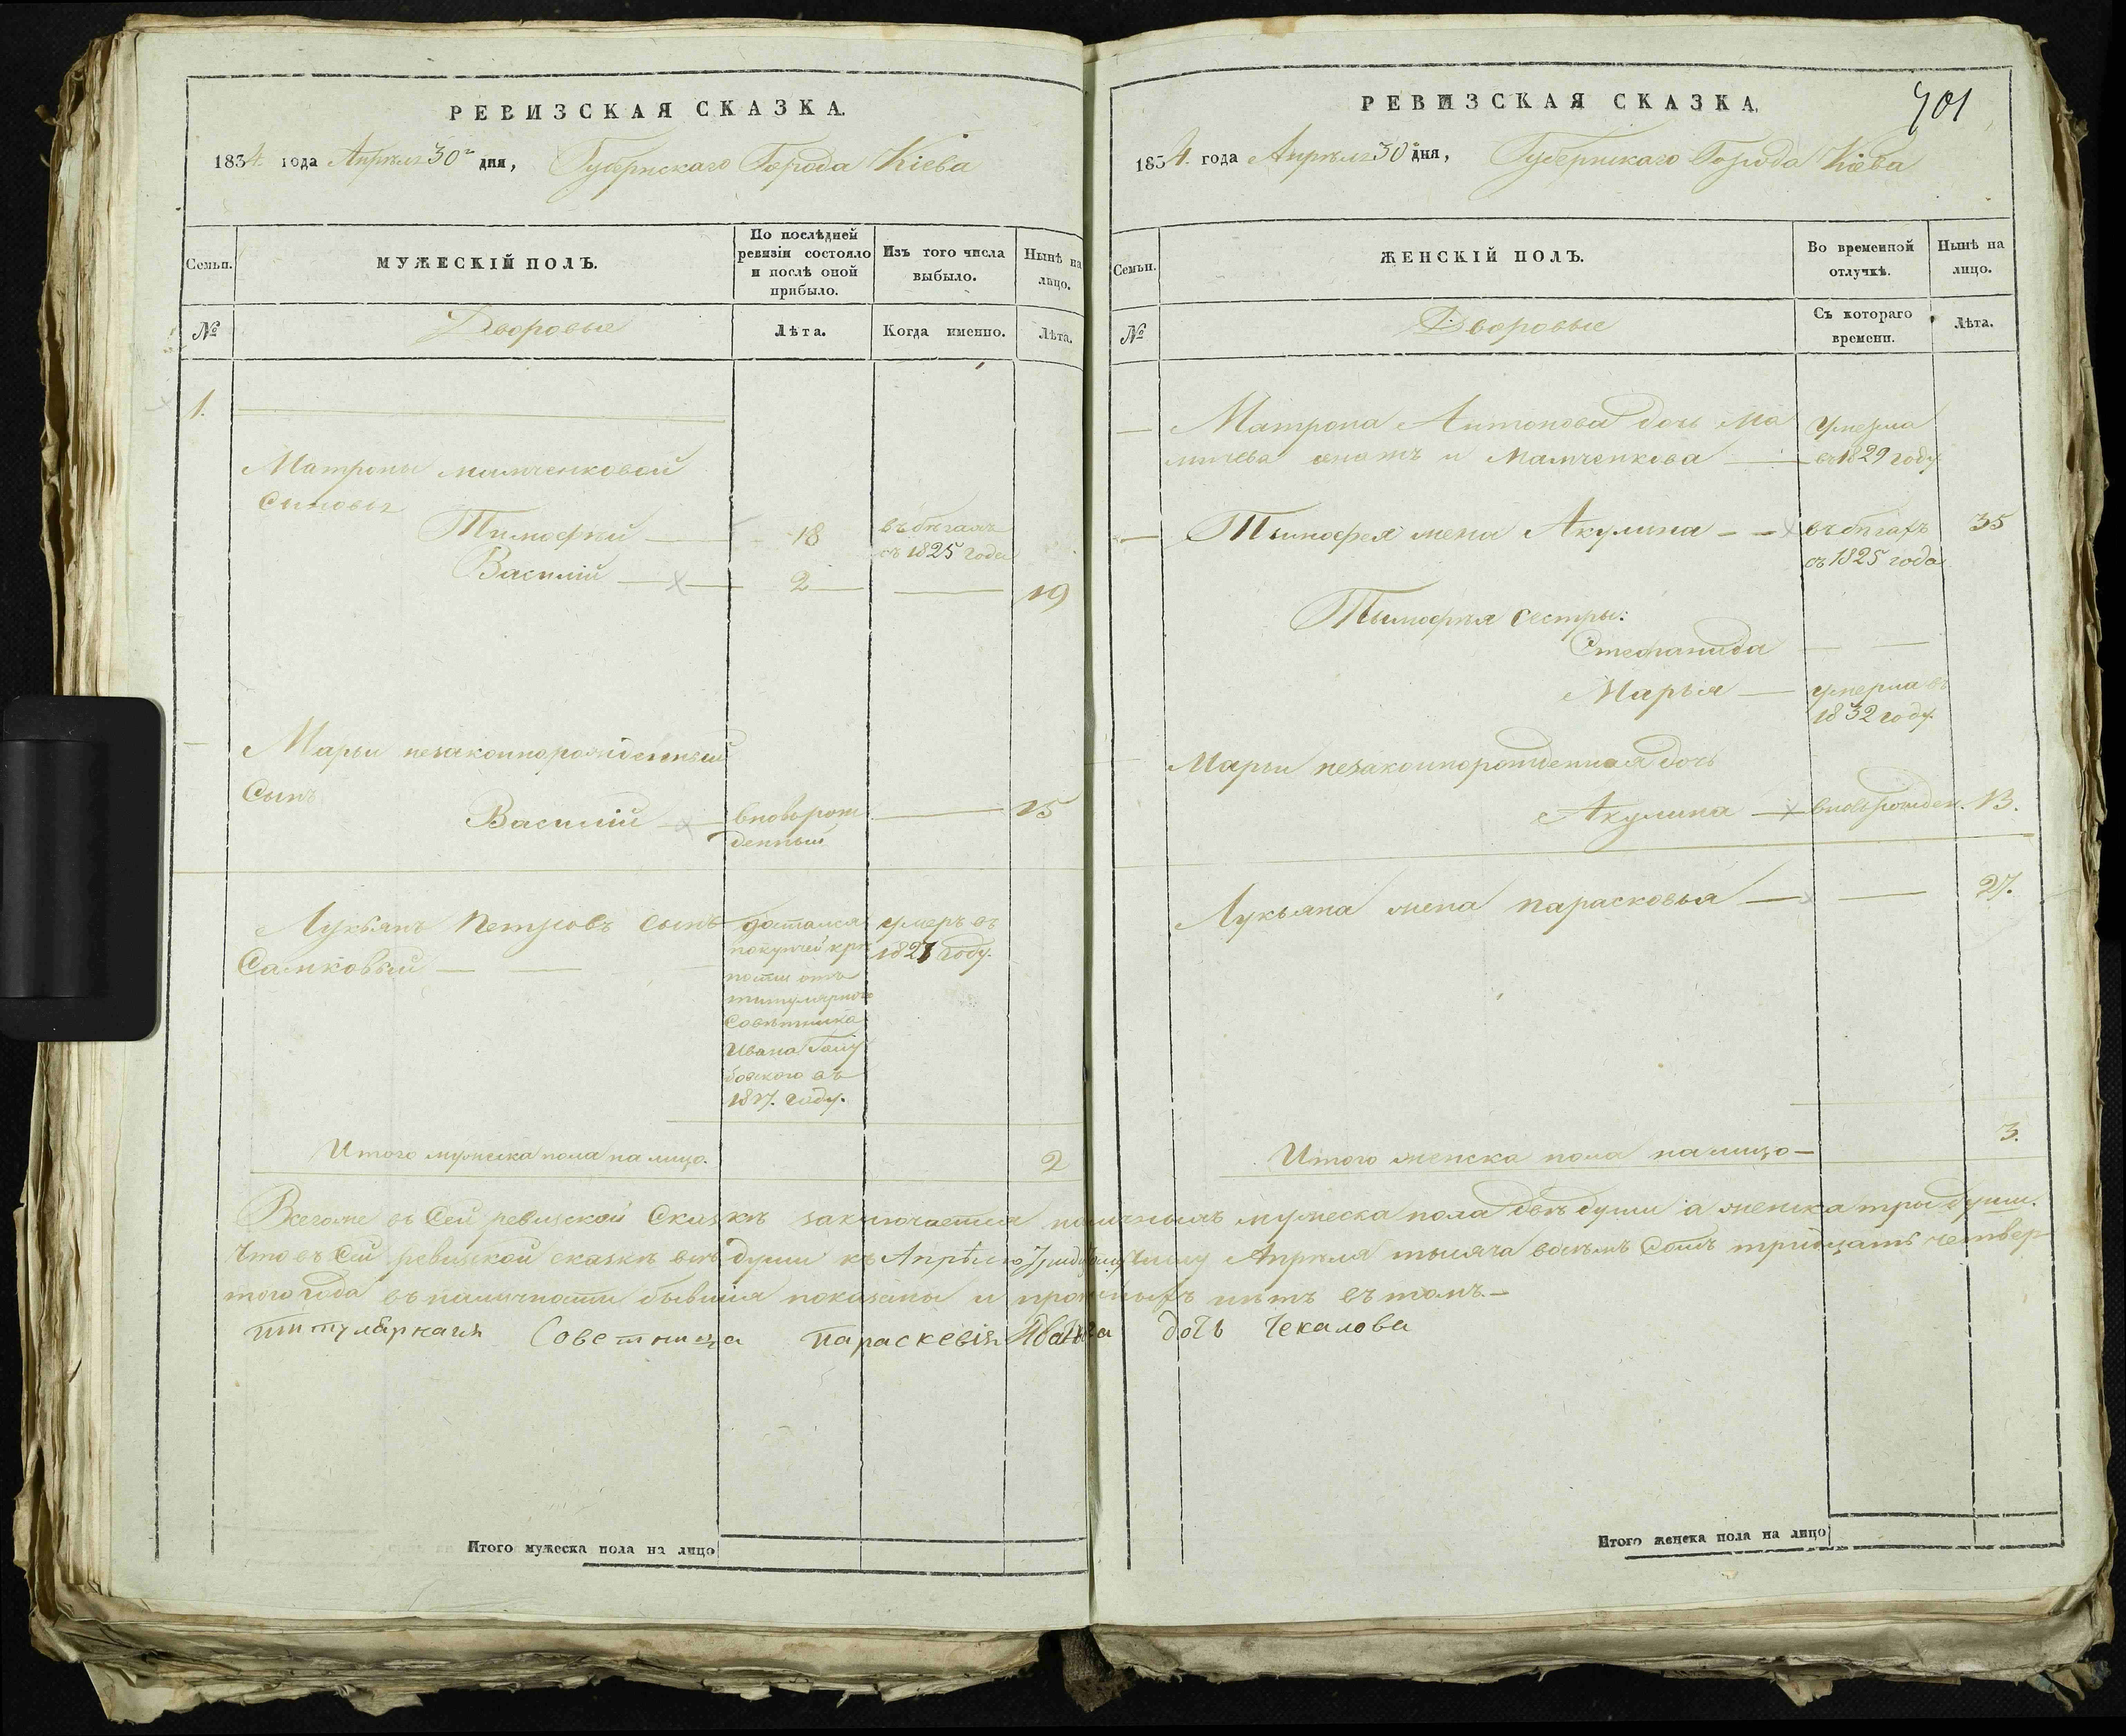 РЕВИЗСКАЯ СКАЗКА.
1834 года Апреля 30 дня, Губернскаго Города Кіева
Семьи.
МУЖЕСКІЙ ПОЛЪ.
По послѣдней ревизіи состояло и послѣ оной прибыло.
Изъ того числа выбыло.
Нынѣ на лицо.
№
Дворовые
Лѣта.
Когда именно.
Лѣта.
1.
Матроны мамченковой
Сыновья
Тимофей 18 въ бѣгахъ
съ 1825 года
Василій 2 19
Марьи незаконнорожденный
Сынъ
Василій вновьрож 15
денный
Лукьянъ Петровъ сынъ достался умеръ въ
Самковый покупчей крѣ 1827 году.
пости отъ
титулярного
Совѣтника
Ивана
въ
году.
Итого мужеска пола на лицо. 2
РЕВИЗСКАЯ СКАЗКА.
701
1834. года Апреля 30 дня, Губернскаго Города Кіева
Семьи.
ЖЕНСКІЙ ПОЛЪ.
Во временной отлучкѣ.
Нынѣ на лицо.
№
Дворовые
Съ котораго времени.
Лѣта.
Матрона Антонова дочь умерла
и Мамченкова въ 1829 году
Тимофея жена Акулина въ бѣгахъ 35
съ 1825 года
Тимофѣя сестры:
Стефанида
Марья умерла въ
1832 году.
Марьи незаконнорожденная дочь
Акулина вновьрожден. 13.
Лукьяна жена парасковья 27.
3.
Итого женска пола на лицо
Всегоже въ Сей ревизской Сказкѣ заключается наличныхъ мужеска пола двѣ души а женска три души.
Что въ Сей ревизской сказкѣ всѣ души къ числу Апрѣля тысяча восемь Сотъ тридцать четвер
того года въ наличности бывшія показаны и нѣтъ въ томъ.
титулярная Советница параскевія Ивано́ва дочь Чекалова
Итого мужеска пола на лицо
Итого женска пола на лицо